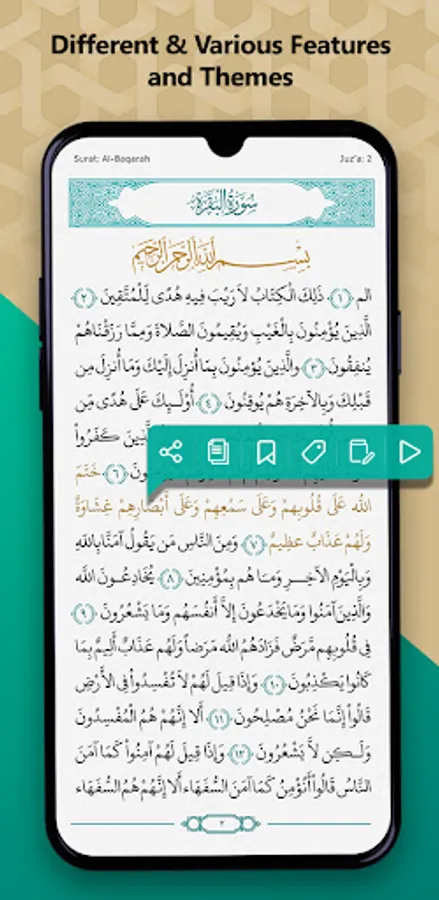 Different & Various Features
and Themes
Surat: Al-Baqarah
Juz'a: 2
سُورَةُ الْبَقَرَةِ
بِسْمِ اللهِ الرَّحْمَنِ الرَّحِيمِ
الم ﴿١﴾ ذَلِكَ الْكِتَابُ لاَ رَيْبَ فِيهِ هُدًى لِلْمُتَّقِينَ ﴿٢﴾
الَّذِينَ يُؤْمِنُونَ بِالْغَيْبِ وَيُقِيمُونَ الصَّلاَةَ وَمِمَّا رَزَقْنَاهُمْ
يُنفِقُونَ ﴿٣﴾ والَّذِينَ يُؤْمِنُونَ بِمَا أُنزِلَ إِلَيْكَ وَمَا أُنزِلَ مِن
قَبْلِكَ وَبِالآخِرَةِ هُمْ يُوقِنُونَ ﴿٤﴾ أُوْلَـئِكَ عَلَى هُدًى مِّن
الَّذِينَ كَفَرُواْ
﴿٦﴾ خَتَمَ
اللهُ عَلَى قُلُوبِهِمْ وَعَلَى سَمْعِهِمْ وَعَلَى أَبْصَارِهِمْ غِشَاوَةٌ
وَلَهُمْ عَذَابٌ عظِيمٌ ﴿٧﴾ وَمِنَ النَّاسِ مَن يَقُولُ آمَنَّا بِاللهِ
وَبِالْيَوْمِ الآخِرِ وَمَا هُم بِمُؤْمِنِينَ ﴿٨﴾ يُخَادِعُونَ اللهَ
وَالَّذِينَ آمَنُوا وَمَا يَخْدَعُونَ إِلاَّ أَنفُسَهُم وَمَا يَشْعُرُونَ ﴿٩﴾
فِي قُلُوبِهِم مَّرَضٌ فَزَادَهُمُ اللهُ مَرَضاً وَلَهُم عَذَابٌ أَلِيمٌ بِمَا
كَانُوا يَكْذِبُونَ ﴿١٠﴾ وَإِذَا قِيلَ لَهُمْ لاَ تُفْسِدُواْ فِي الأَرْضِ
قَالُواْ إِنَّمَا نَحْنُ مُصْلِحُونَ ﴿١١﴾ أَلا إِنَّهُمْ هُمُ الْمُفْسِدُونَ
وَلَـكِن لاَّ يَشْعُرُونَ ﴿١٢﴾ وَإِذَا قِيلَ لَهُمْ آمِنُواْ كَمَا آمَنَ
النَّاسُ قَالُواْ أَنُؤْمِنُ كَمَا آمَنَ السُّفَهَاء أَلا إِنَّهُمْ هُمُ السُّفَهَاء
٢